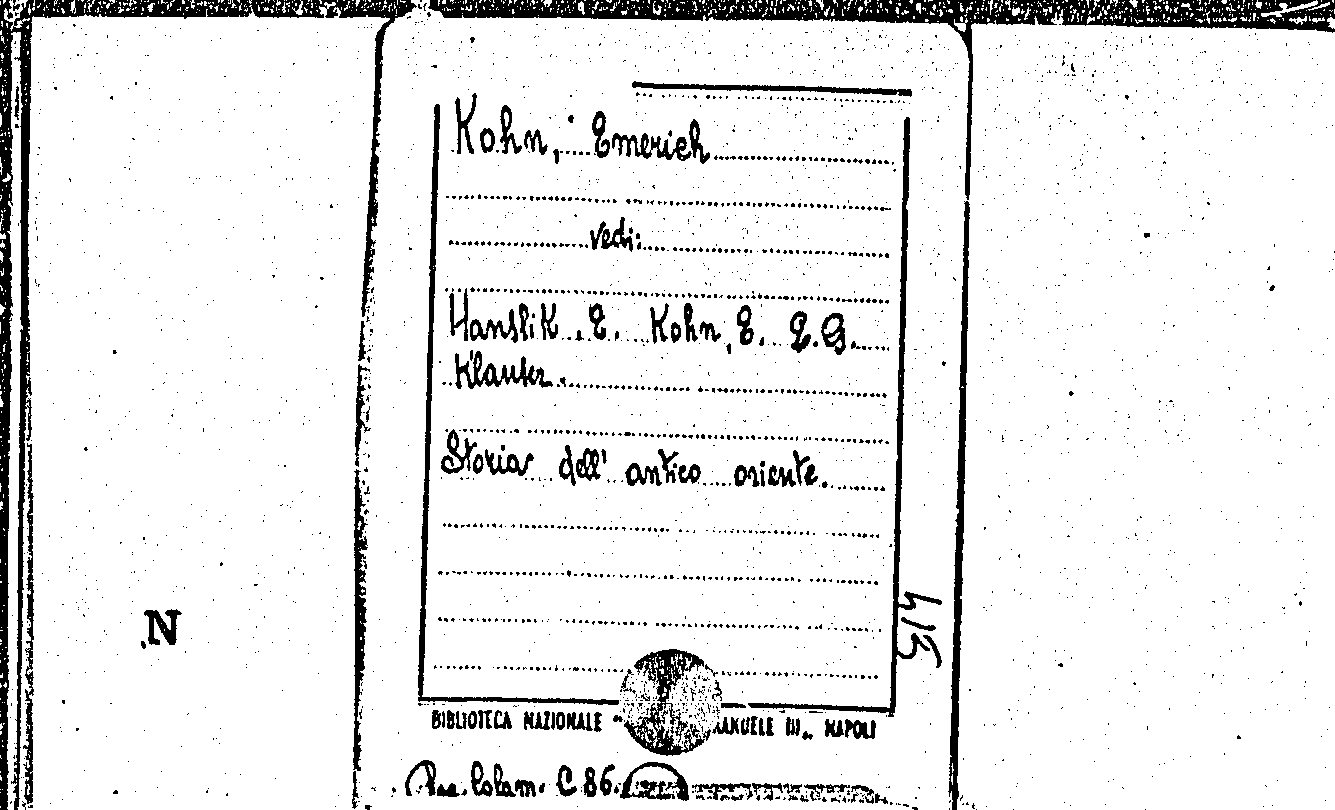 Kohn, Emerich
vedi:
Hanslik E. Kohn, E. E.G.
Klauber.
Storia dell' antico oriente.
N
BIBLIOTECA NAZIONALE " ANUELE III„ NAPOLI
Colam. C 86